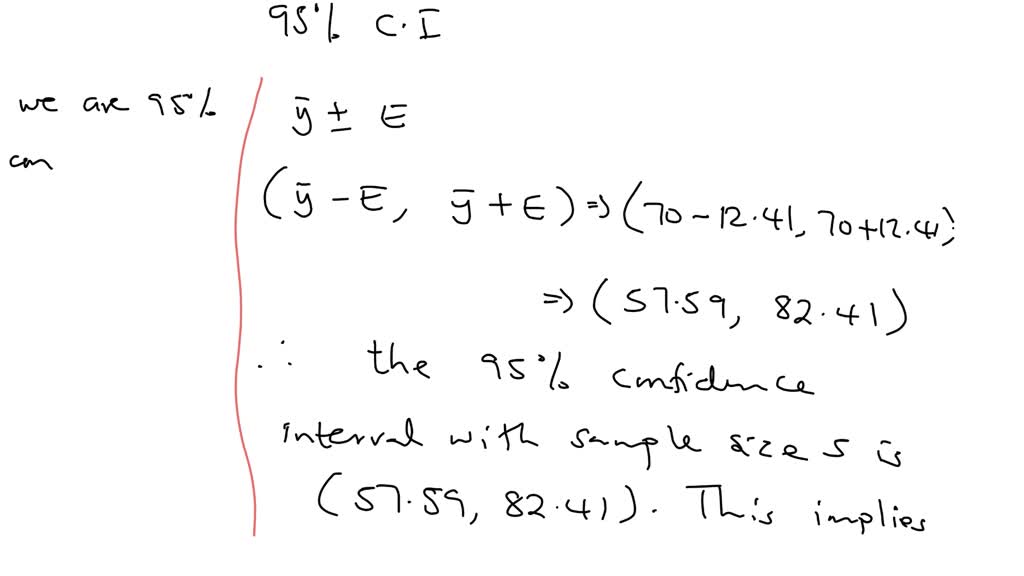 95% C.I
we are 95%
con
ȳ ± E
(ȳ - E, ȳ + E) ⇒ (70 - 12.41, 70+12.41)
⇒ (57.59, 82.41)
∴ the 95% confidence
interval with sample size 5 is
(57.59, 82.41). This implies